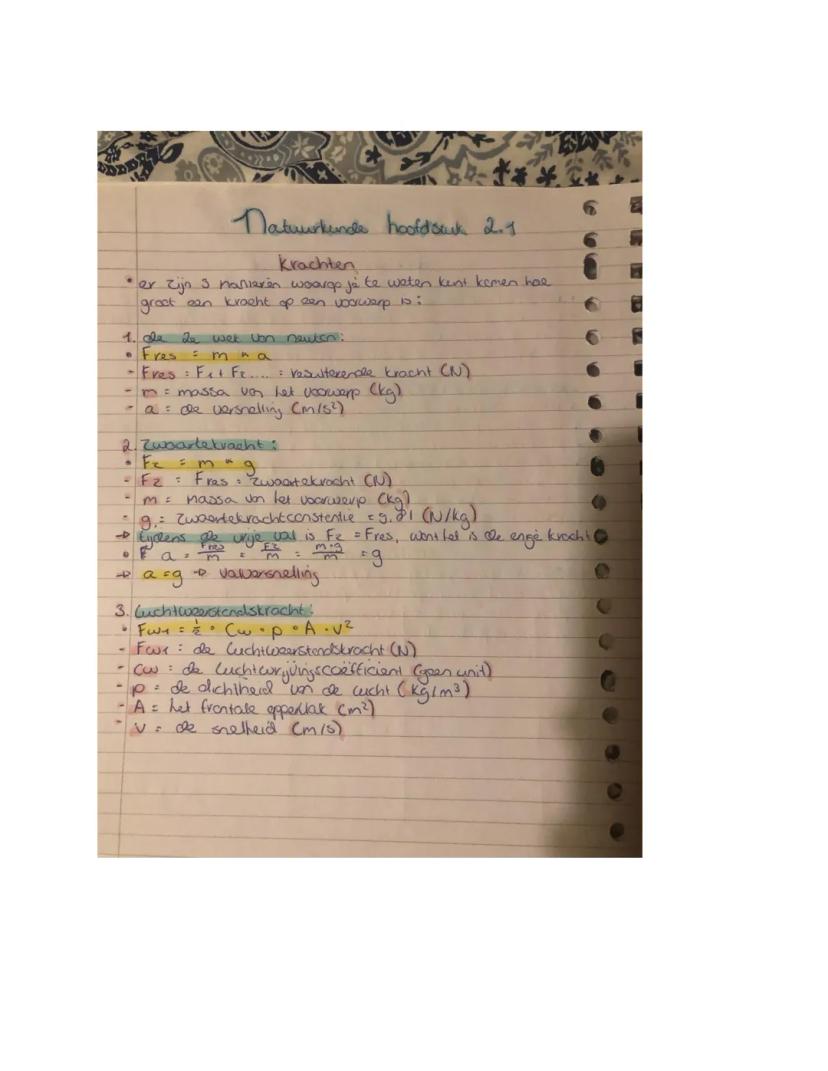 Natuurkunde hoofdstuk 2.1
Krachten
• er zijn 3 manieren waarop je te weten kunt komen hoe
groot een kracht op een voorwerp is:
1. de 2e wet van newton:
• Fres = m * a
- Fres = F1 + F2.... = resulterende kracht (N)
- m = massa van het voorwerp (kg)
- a = de versnelling (m/s²)
2. Zwaartekracht:
• Fz = m * g
- Fz = Fres = zwaartekracht (N)
- m = massa van het voorwerp (kg)
- g = zwaartekrachtconstentie = 9.81 (N/kg)
→ tijdens de vrije val is Fz = Fres, want het is de enge kracht
• a = Fres/m = Fz/m = m·g/m = g
→ a = g → valversnelling
3. Luchtweerstandskracht:
• Fwl = ½ • Cw • p • A • v²
- Fwl = de luchtweerstandskracht (N)
- Cw = de luchtwrijvingscoëfficient (geen unit)
- p = de dichtheid van de lucht (kg/m³)
- A = het frontale oppervlak (m²)
- v = de snelheid (m/s)